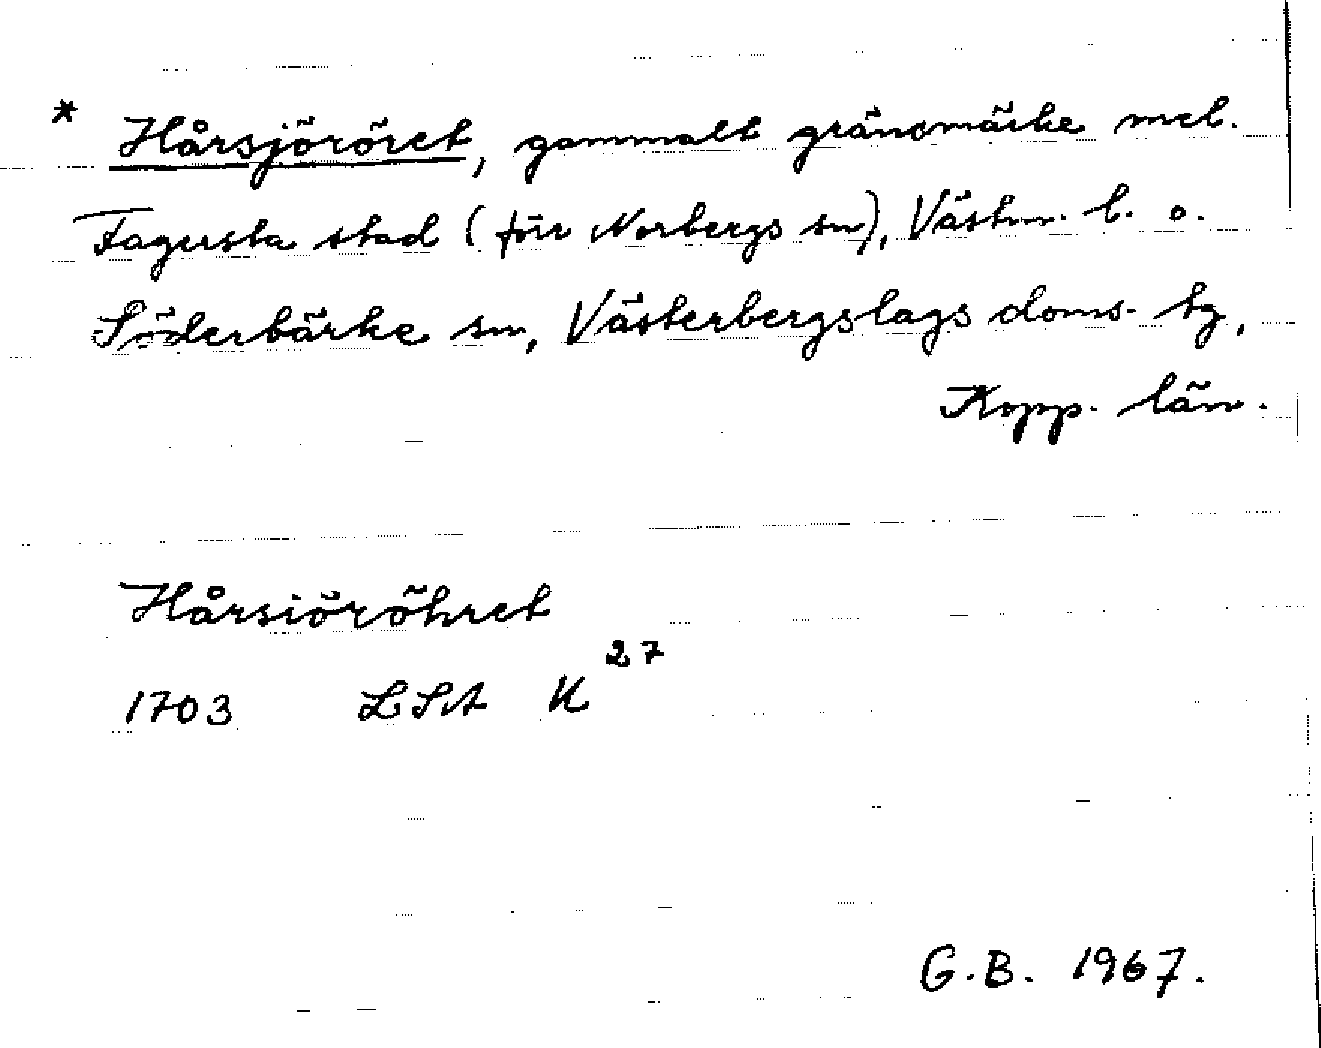 * Hårsjöröret, gammalt gränsmärke mel.
Fagersta stad (förr Norbergs sn), Västm. l. o.
Söderbärke sn, Västerbergslags doms. tg,
Kopp. län.
Hårsiöröhret
1703 LSA U 27
G.B. 1967.